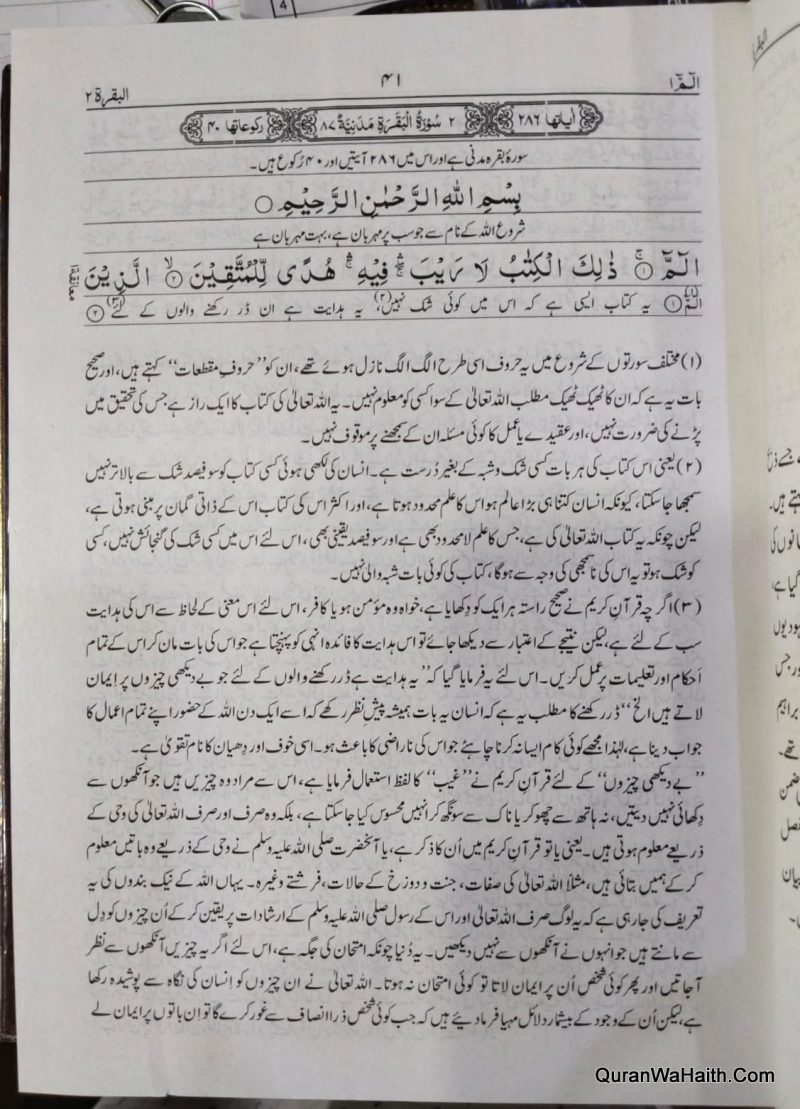 4
الٓمّٓ ۱
۴۱
البقرۃ ۲
اٰیاتها ۲۸۶
۲ سُوْرَةُ الْبَقَرَةِ مَدَنِيَّةٌ ۸۷
رکوعاتها ۴۰
سورۂ بقرہ مدنی ہے اور اس میں ۲۸۶ آیتیں اور ۴۰ رُکوع ہیں۔
بِسْمِ اللّٰهِ الرَّحْمٰنِ الرَّحِيْمِ ○
شروع اللہ کے نام سے جو سب پر مہربان ہے، بہت مہربان ہے
الٓمّٓ ۚ﴿۱﴾ ذٰلِكَ الْكِتٰبُ لَا رَيْبَ ۛۖ فِيْهِ ۛۚ هُدًى لِّلْمُتَّقِيْنَ ۙ﴿۲﴾ الَّذِيْنَ
الٓمّٓ(۱) ﴿۱﴾ یہ کتاب ایسی ہے کہ اس میں کوئی شک نہیں(۲)، یہ ہدایت ہے ان ڈر رکھنے والوں کے لئے(۳) ﴿۲﴾
(۱) مختلف سورتوں کے شروع میں یہ حروف اسی طرح الگ الگ نازل ہوئے تھے، ان کو ’’حروفِ مقطعات‘‘ کہتے ہیں، اور صحیح
بات یہ ہے کہ ان کا ٹھیک ٹھیک مطلب اللہ تعالیٰ کے سوا کسی کو معلوم نہیں۔ یہ اللہ تعالیٰ کی کتاب کا ایک راز ہے جس کی تحقیق میں
پڑنے کی ضرورت نہیں، اور عقیدے یا عمل کا کوئی مسئلہ ان کے سمجھنے پر موقوف نہیں۔
(۲) یعنی اس کتاب کی ہر بات کسی شک و شبہ کے بغیر دُرست ہے۔ انسان کی لکھی ہوئی کسی کتاب کو سو فیصد شک سے بالاتر نہیں
سمجھا جا سکتا، کیونکہ انسان کتنا ہی بڑا عالم ہو اس کا علم محدود ہوتا ہے، اور اکثر اس کی کتاب اس کے ذاتی گمان پر مبنی ہوتی ہے،
لیکن چونکہ یہ کتاب اللہ تعالیٰ کی ہے، جس کا علم لامحدود بھی ہے اور سو فیصد یقینی بھی، اس لئے اس میں کسی شک کی گنجائش نہیں، کسی
کو شک ہو تو یہ اس کی ناسمجھی کی وجہ سے ہوگا، کتاب کی کوئی بات شبہ والی نہیں۔
(۳) اگرچہ قرآنِ کریم نے صحیح راستہ ہر ایک کو دِکھایا ہے، خواہ وہ مؤمن ہو یا کافر، اس لئے اس معنی کے لحاظ سے اس کی ہدایت
سب کے لئے ہے، لیکن نتیجے کے اعتبار سے دیکھا جائے تو اس ہدایت کا فائدہ انہی کو پہنچتا ہے جو اس کی بات مان کر اس کے تمام
اَحکام اور تعلیمات پر عمل کریں۔ اس لئے یہ فرمایا گیا کہ ’’یہ ہدایت ہے ڈر رکھنے والوں کے لئے جو بے دیکھی چیزوں پر اِیمان
لاتے ہیں الخ‘‘ ڈر رکھنے کا مطلب یہ ہے کہ انسان یہ بات ہمیشہ پیشِ نظر رکھے کہ اسے ایک دن اللہ کے حضور اپنے تمام اعمال کا
جواب دینا ہے، لہٰذا مجھے کوئی کام ایسا نہ کرنا چاہئے جو اس کی ناراضی کا باعث ہو۔ اسی خوف اور دِھیان کا نام تقویٰ ہے۔
’’بے دیکھی چیزوں‘‘ کے لئے قرآنِ کریم نے ’’غیب‘‘ کا لفظ استعمال فرمایا ہے، اس سے مراد وہ چیزیں ہیں جو آنکھوں سے
دِکھائی نہیں دیتیں، نہ ہاتھ سے چھو کر یا ناک سے سونگھ کر انہیں محسوس کیا جا سکتا ہے، بلکہ وہ صرف اور صرف اللہ تعالیٰ کی وحی کے
ذریعے معلوم ہوتی ہیں۔ یعنی یا تو قرآنِ کریم میں اُن کا ذکر ہے، یا آنحضرت صلی اللہ علیہ وسلم نے وحی کے ذریعے وہ باتیں معلوم
کر کے ہمیں بتائی ہیں، مثلاً اللہ تعالیٰ کی صفات، جنت و دوزخ کے حالات، فرشتے وغیرہ۔ یہاں اللہ کے نیک بندوں کی یہ
تعریف کی جا رہی ہے کہ یہ لوگ صرف اللہ تعالیٰ اور اس کے رسول صلی اللہ علیہ وسلم کے ارشادات پر یقین کر کے اُن چیزوں کو دِل
سے مانتے ہیں جو انہوں نے آنکھوں سے نہیں دیکھیں۔ یہ دُنیا چونکہ امتحان کی جگہ ہے، اس لئے اگر یہ چیزیں آنکھوں سے نظر
آجاتیں اور پھر کوئی شخص اُن پر ایمان لاتا تو کوئی امتحان نہ ہوتا۔ اللہ تعالیٰ نے ان چیزوں کو اِنسان کی نگاہ سے پوشیدہ رکھا
ہے، لیکن اُن کے وجود کے بیشمار دلائل مہیا فرما دیئے ہیں کہ جب کوئی شخص ذرا انصاف سے غور کرے گا تو اِن باتوں پر ایمان لے
QuranWaHaith.Com